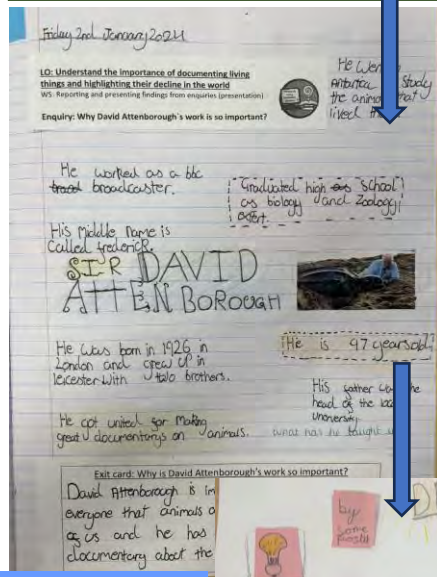 Friday 2nd January 2024
LO: Understand the importance of documenting living
things and highlighting their decline in the world
WS: Reporting and presenting findings from enquiries (presentation)
Enquiry: Why David Attenborough's work is so important?
He went
Antartica study
the animals that
lived
He worked as a bbc
broadcaster.
Graduated high school
as biology and Zoology
exert.
His Middle name is
Called frederick.
SIR DAVID
ATTENBOROUGH
He was born in 1926 in
London and grew up in
leicester with two brothers.
He is 97 years old
His father was the
head of the
university
He got united for Making
great documentarys on animals.
what has he taught
Exit card: Why is David Attenborough's work so important?
David Attenborough is
everyone that animals
as us and he has
documentary about the
by
some
people